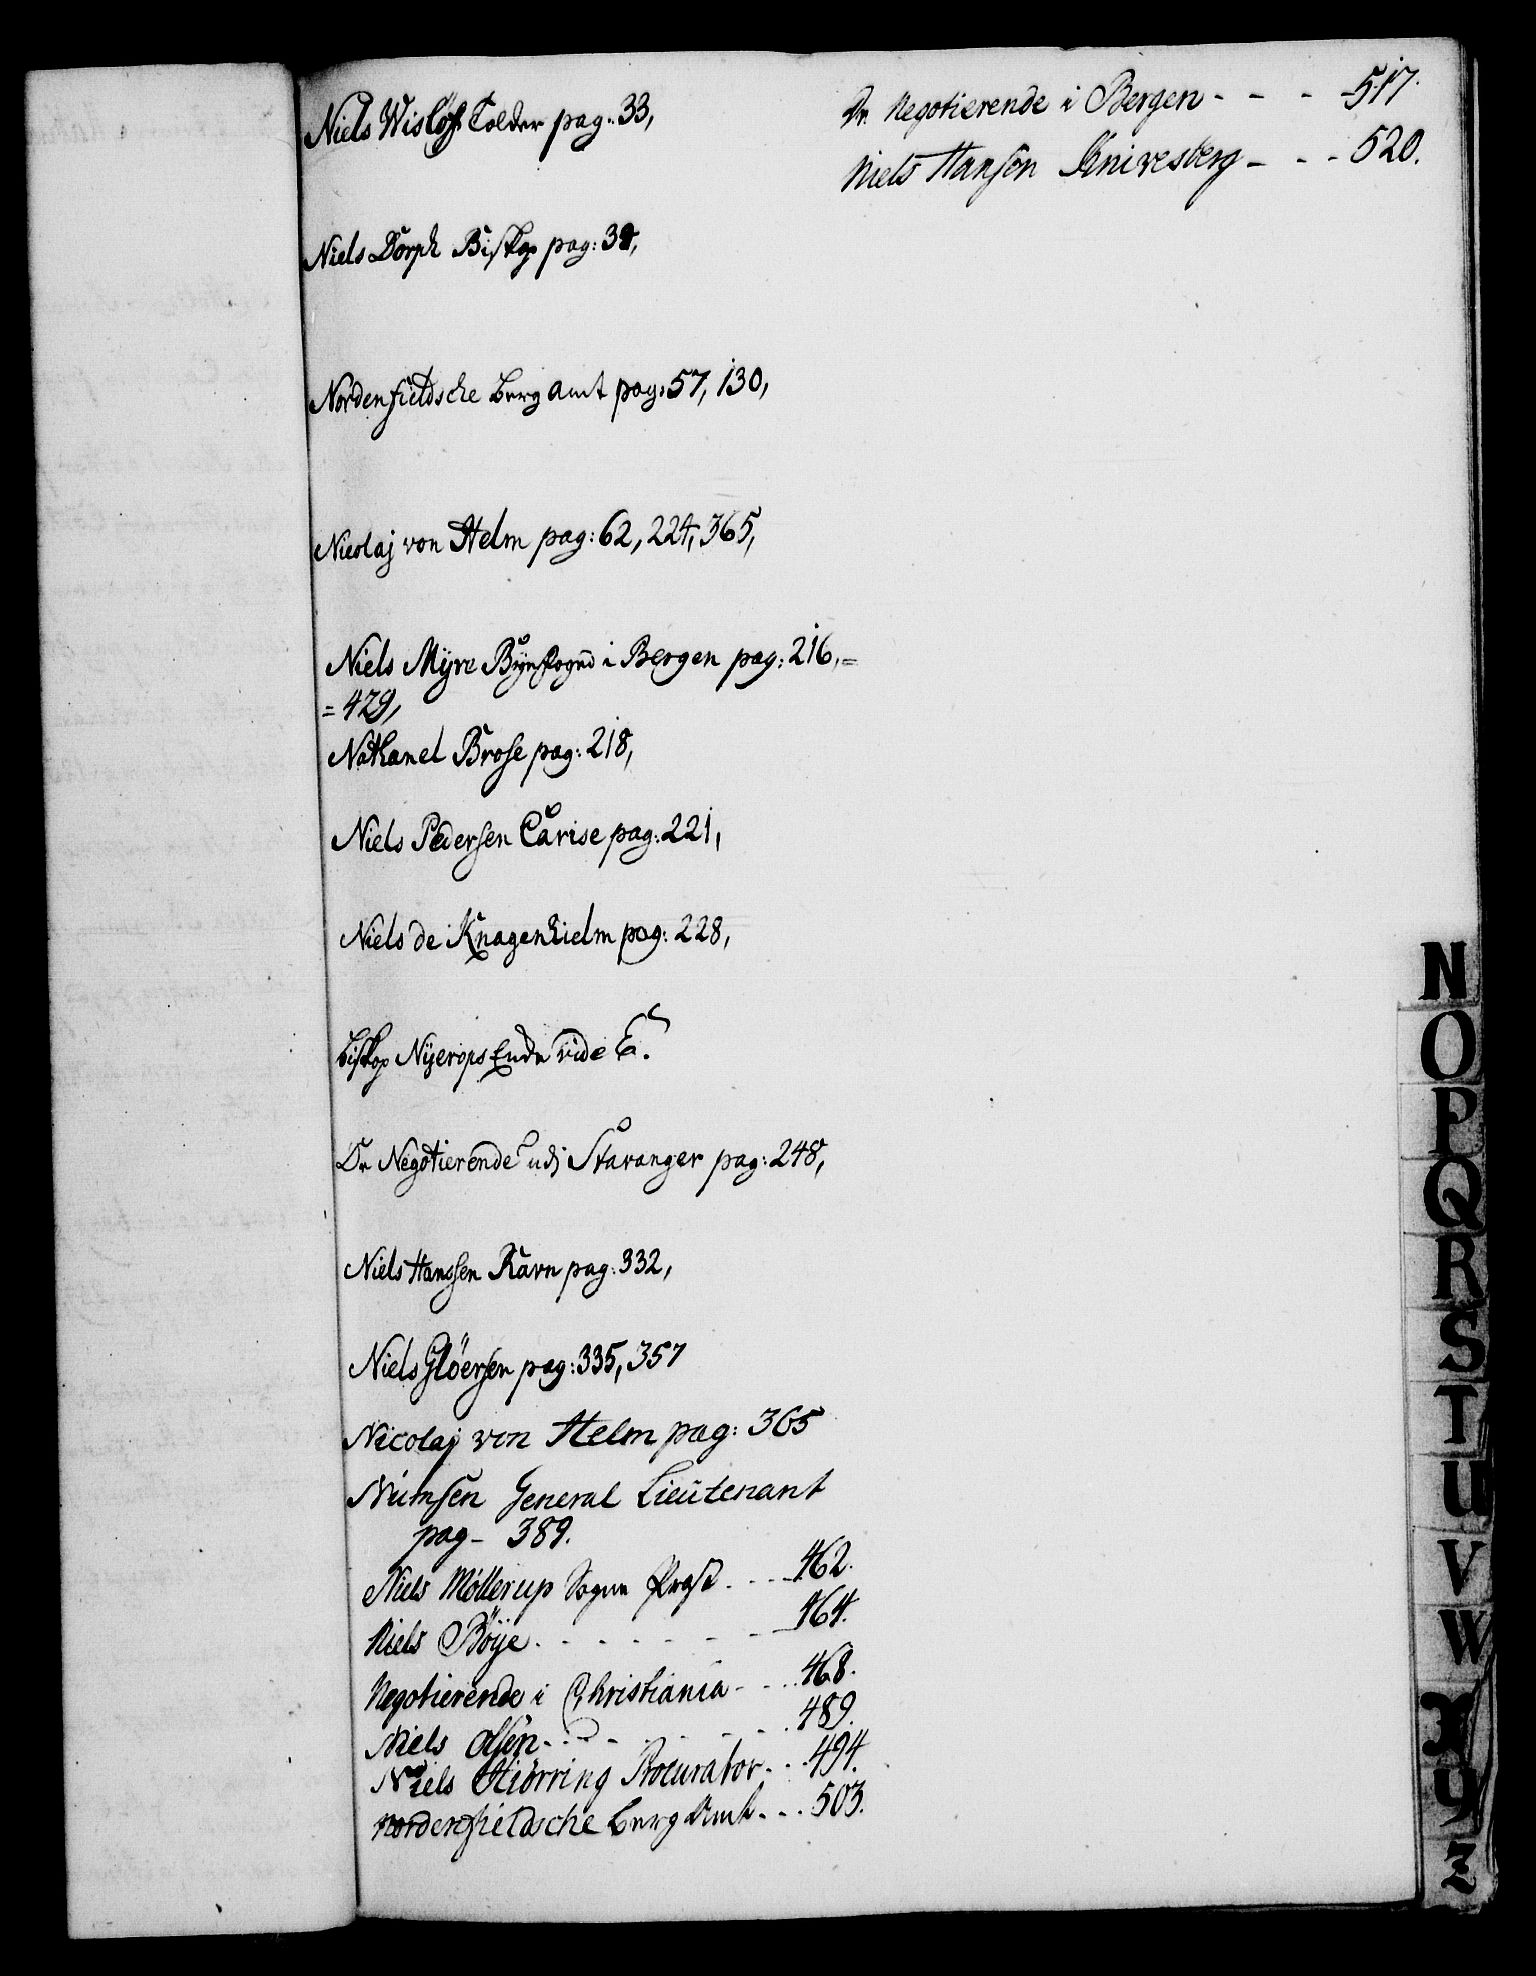 Niels Wisløf Tolder pag: 33,
Niels Dorph Biskop pag: 38,
Nordenfieldsche berg amt pag: 57, 130,
Nicolaj von Helm pag: 62, 224, 365,
Niels Myre Byefoged i Bergen pag: 216,=
= 429,
Nathanel Brose pag: 218,
Niels Pedersen Carise pag: 221,
Niels de Knagenhielm pag: 228,
biskop Nyerops Enke vide E.
De Negotierende udj Stavanger pag: 248,
Niels Hanssen Ravn pag: 332,
Niels Gløersen pag: 335, 357
Nicolaj von Helm pag: 365
Numsen General Lieutenant
pag - 389.
Niels Møllerup Sogne Præst - - - 462.
Niels Böye - - - - - - 464.
Negotierende i Christiania - - - 468.
Niels Olsen - - - - - - 489.
Niels Hiørring Procurator - - - 494.
nordenfieldsche berg Amt - - - 503.
De Negotierende i Bergen - - - - 517.
Niels Hansen Knivesberg - - - 520.
N
O
P
Q
R
S
T
U
V
W
X
Y
Z